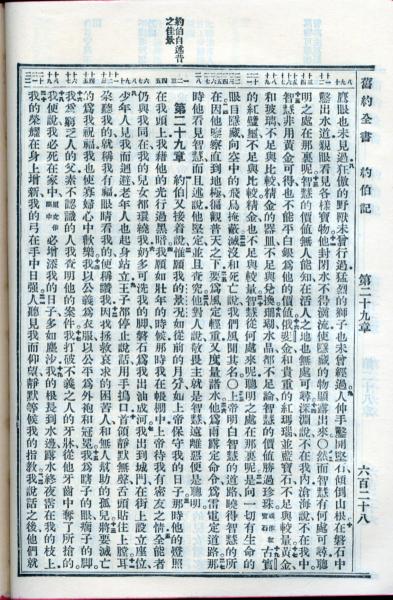 約伯自述昔
之佳景
舊約全書　約伯記　第二十九章　六百二十八
鷹眼也未見過狂傲的野獸未曾行過猛烈的獅子也未曾經過人伸手鑿開堅石傾倒山根在磐石中
鑿出水道親眼看見各樣寶物他封閉水不得滴流使隱藏的物顯露出來○然而智慧有何處可尋聰
明之處在那裏呢智慧的價値無人能知在活人之地也無處可尋深淵說不在我內滄海說不在我中
智慧非用黃金可得也不能平白銀爲他的價値俄斐金和貴重的紅瑪瑙並藍寶石不足與較量黃金
和玻璃不足與比較精金的器皿不足與兌換珊瑚水晶都不足論智慧的價値勝過珍珠或作紅寶石古實
的紅璧璽不足與比較精金也不足與較量智慧從何處來呢聰明之處在那裏呢是向一切有生命的
眼目隱藏向空中的飛鳥掩蔽滅沒和死亡說我們風聞其名○上帝明白智慧的道路曉得智慧的所
在因他鑒察直到地極徧觀普天之下要爲風定輕重又度量諸水他爲雨露定命令爲雷電定道路那
時他看見智慧而且述說他堅定並且查究他對人說敬畏主就是智慧遠離惡便是聰明
第二十九章　約伯又接着說惟願我的景況如從前的月分如上帝保守我的日子那時他的燈照
在我頭上我藉他的光行過黑暗我願如壯年的時候那時我在帳棚中上帝待我有密友之情全能者
仍與我同在我的兒女都環繞我奶多可洗我的脚磐石爲我出油成河我出到城門在街上設立座位
少年人見我而迴避老年人也起身站立王子都停止說話用手摀口首領靜默無聲舌頭貼住上膛耳
朵聽我的就稱我有福眼睛看我的便稱讚我因我拯救哀求的困苦人和無人幫助的孤兒將要滅亡
的爲我祝福我也使寡婦心中歡樂我以公義爲衣服以公平爲外袍和冠冕我爲瞎子的眼瘸子的脚
我爲窮乏人的父素不認識的人我查明他的案件我打破不義之人的牙牀從他牙齒中奪了所搶的
我便說我必死在家中必增添我的日子多如塵沙我的根長到水邊露水終夜霑在我的枝上
我的榮耀在身上增新我的弓在手中日强人聽見我而仰望靜默等候我的指教我說話之後他們就